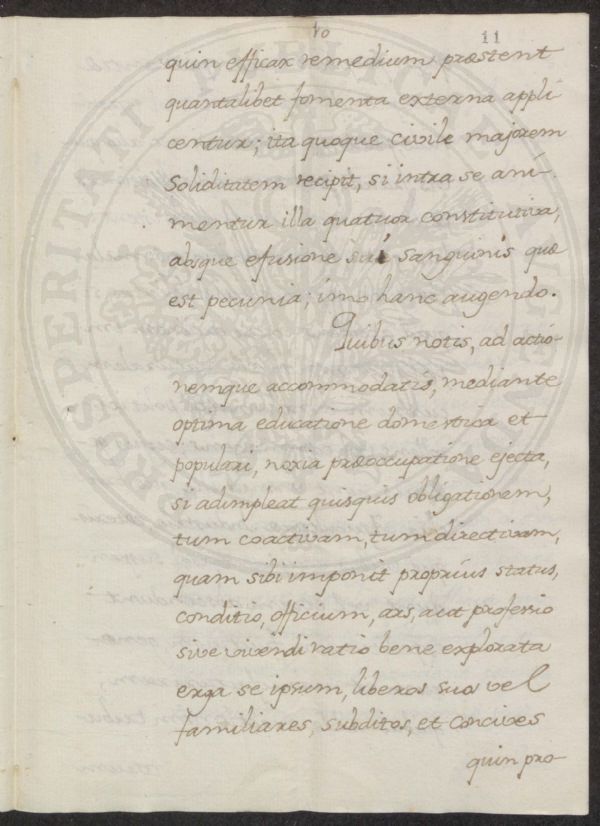 10
11
quin efficax remedium præstent
quantalibet fomenta externa appli
centur; ita quoque civile majorem
Soliditatem recipit, si intra se ani-
mentur illa quatuor constitutiva,
absque efusione sui sanguinis quæ
est pecunia; imo hanc augendo.
Quibus notis, ad actio-
nemque accommodatis, mediante
optima educatione domestica et
populari, noxia præoccupatione ejecta,
si adimpleat quisquis obligationem,
tum coactivam, tum directivam,
quam sibi imponit proprius status,
conditio, officium, ars, aut professio
sive vivendi ratio bene explorata
erga se ipsum, liberos suos vel
familiares, subditos, et concives
quin pro-
PROSPERITATI PUBLICAE AUGENDAE